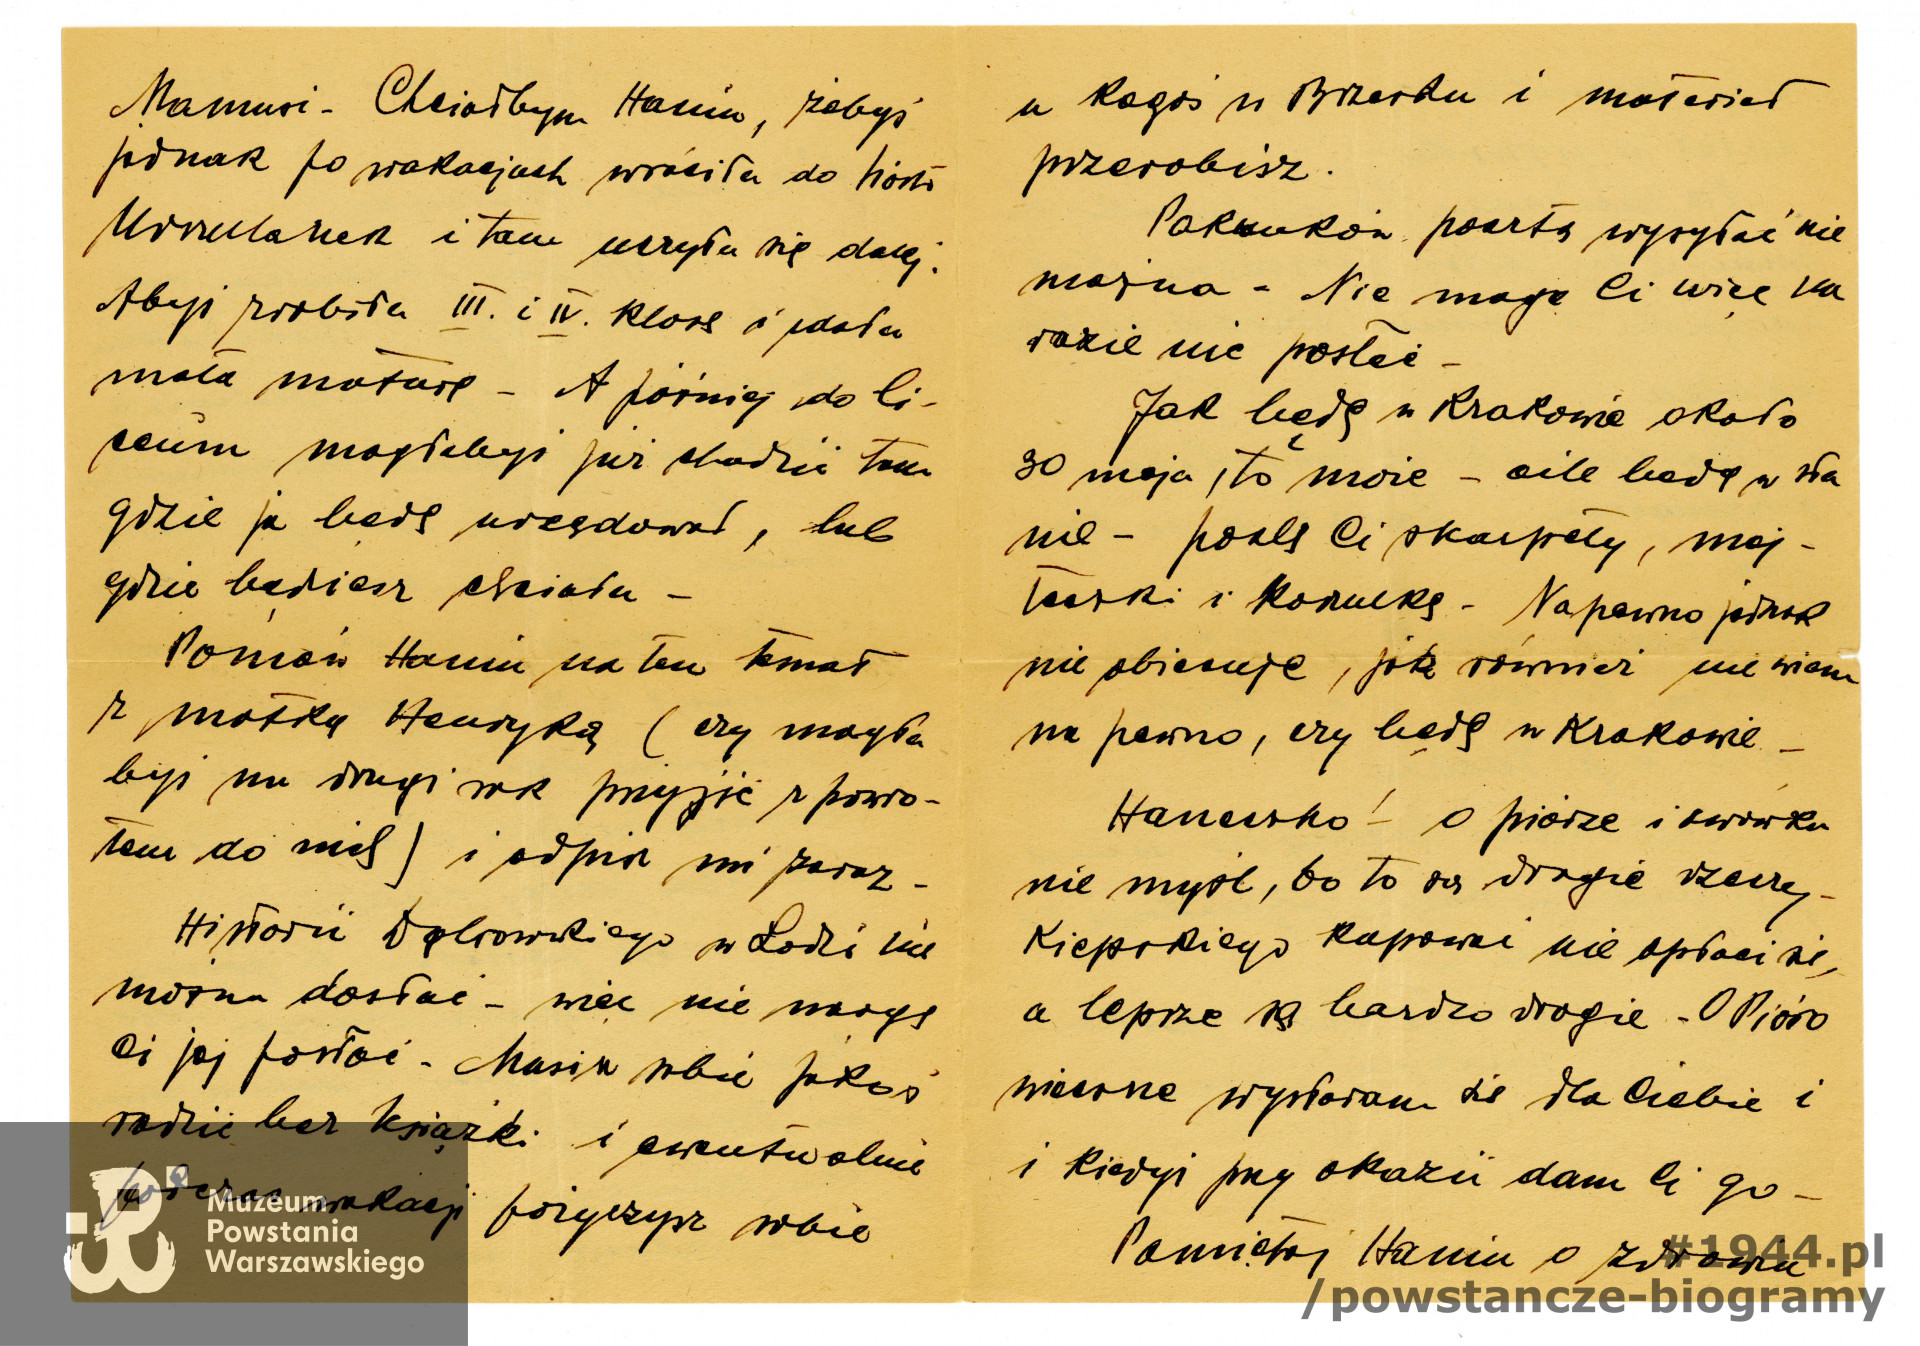 Mamusi - Chciałbym Haniu, żebyś
jednak po wakacjach wróciła do Sióstr
Urszulanek i tam uczyła się dalej.
Abyś zrobiła III. i IV. klasę i zdała
małą maturę - A później do li-
ceum mogłabyś już chodzić tam
gdzie ja będę urzędował, lub
gdzie będziesz chciała -
Pomów Haniu na ten temat
z matką Henryką (czy mogła
byś na drugi rok przyjść z powro-
tem do niej) i odpisz mi zaraz -
Historii Dąbrowskiego w Łodzi nie
można dostać - więc nie mogę
Ci jej posłać - Musisz sobie jakoś
radzić bez książki i ewentualnie
podczas wakacji pożyczysz sobie
u kogoś w Brzesku i materiał
przerobisz.
Pakunków pocztą wysyłać nie
można - Nie mogę Ci więc na
razie nic posłać -
Jak będę w Krakowie około
30 maja, to może - o ile będę w sta
nie - poślę Ci skarpety, maj-
teczki i koszulkę - Na pewno jednak
nie obiecuję, jak również nie wiem
na pewno, czy będę w Krakowie -
Haneczko! - o piórze i ołówku
nie myśl, bo to są drogie rzeczy -
Kiepskiego kupować nie opłaci się,
a lepsze są bardzo drogie - O Pióro
wieczne wystaram się dla Ciebie i
i kiedyś przy okazji dam Ci go -
Pamiętaj Haniu o zdrowiu
Muzeum
Powstania
Warszawskiego
#1944.pl
/powstancze-biogramy